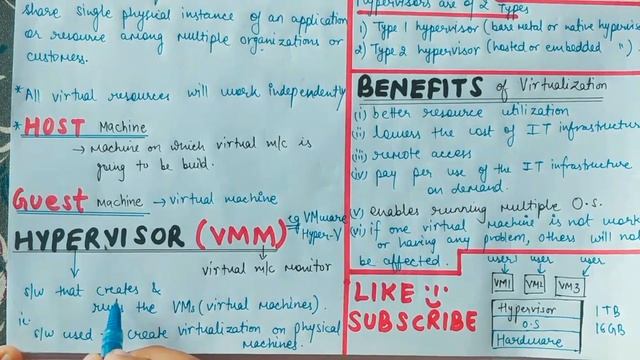 share single physical instance of an application
or resource among multiple organizations or
customers.
* All virtual resources will work independently
* HOST Machine
→ Machine on which virtual m/c is
going to be build.
Guest Machine → virtual machine
HYPERVISOR (VMM) eg VMware
Hyper-V
virtual m/c monitor
s/w that creates &
runs the VMs (virtual machines).
ie.
s/w used create virtualization on physical
machines.
Hypervisors are of 2 Types
1) Type 1 hypervisor (bare metal or native hyperviso
2) Type 2 hypervisor (hosted or embedded " ).
BENEFITS of Virtualization
(i) better resource utilization
(ii) lowers the cost of IT infrastructur
(iii) remote access
(iv) pay per use of the IT infrastructure
on demand.
(v) enables running multiple O.S.
(vi) if one virtual machine is not work
or having any problem, others will not
be affected.
LIKE
SUBSCRIBE
user user user
VM1 VM2 VM3
Hypervisor
O.S
Hardware
1 TB
16GB